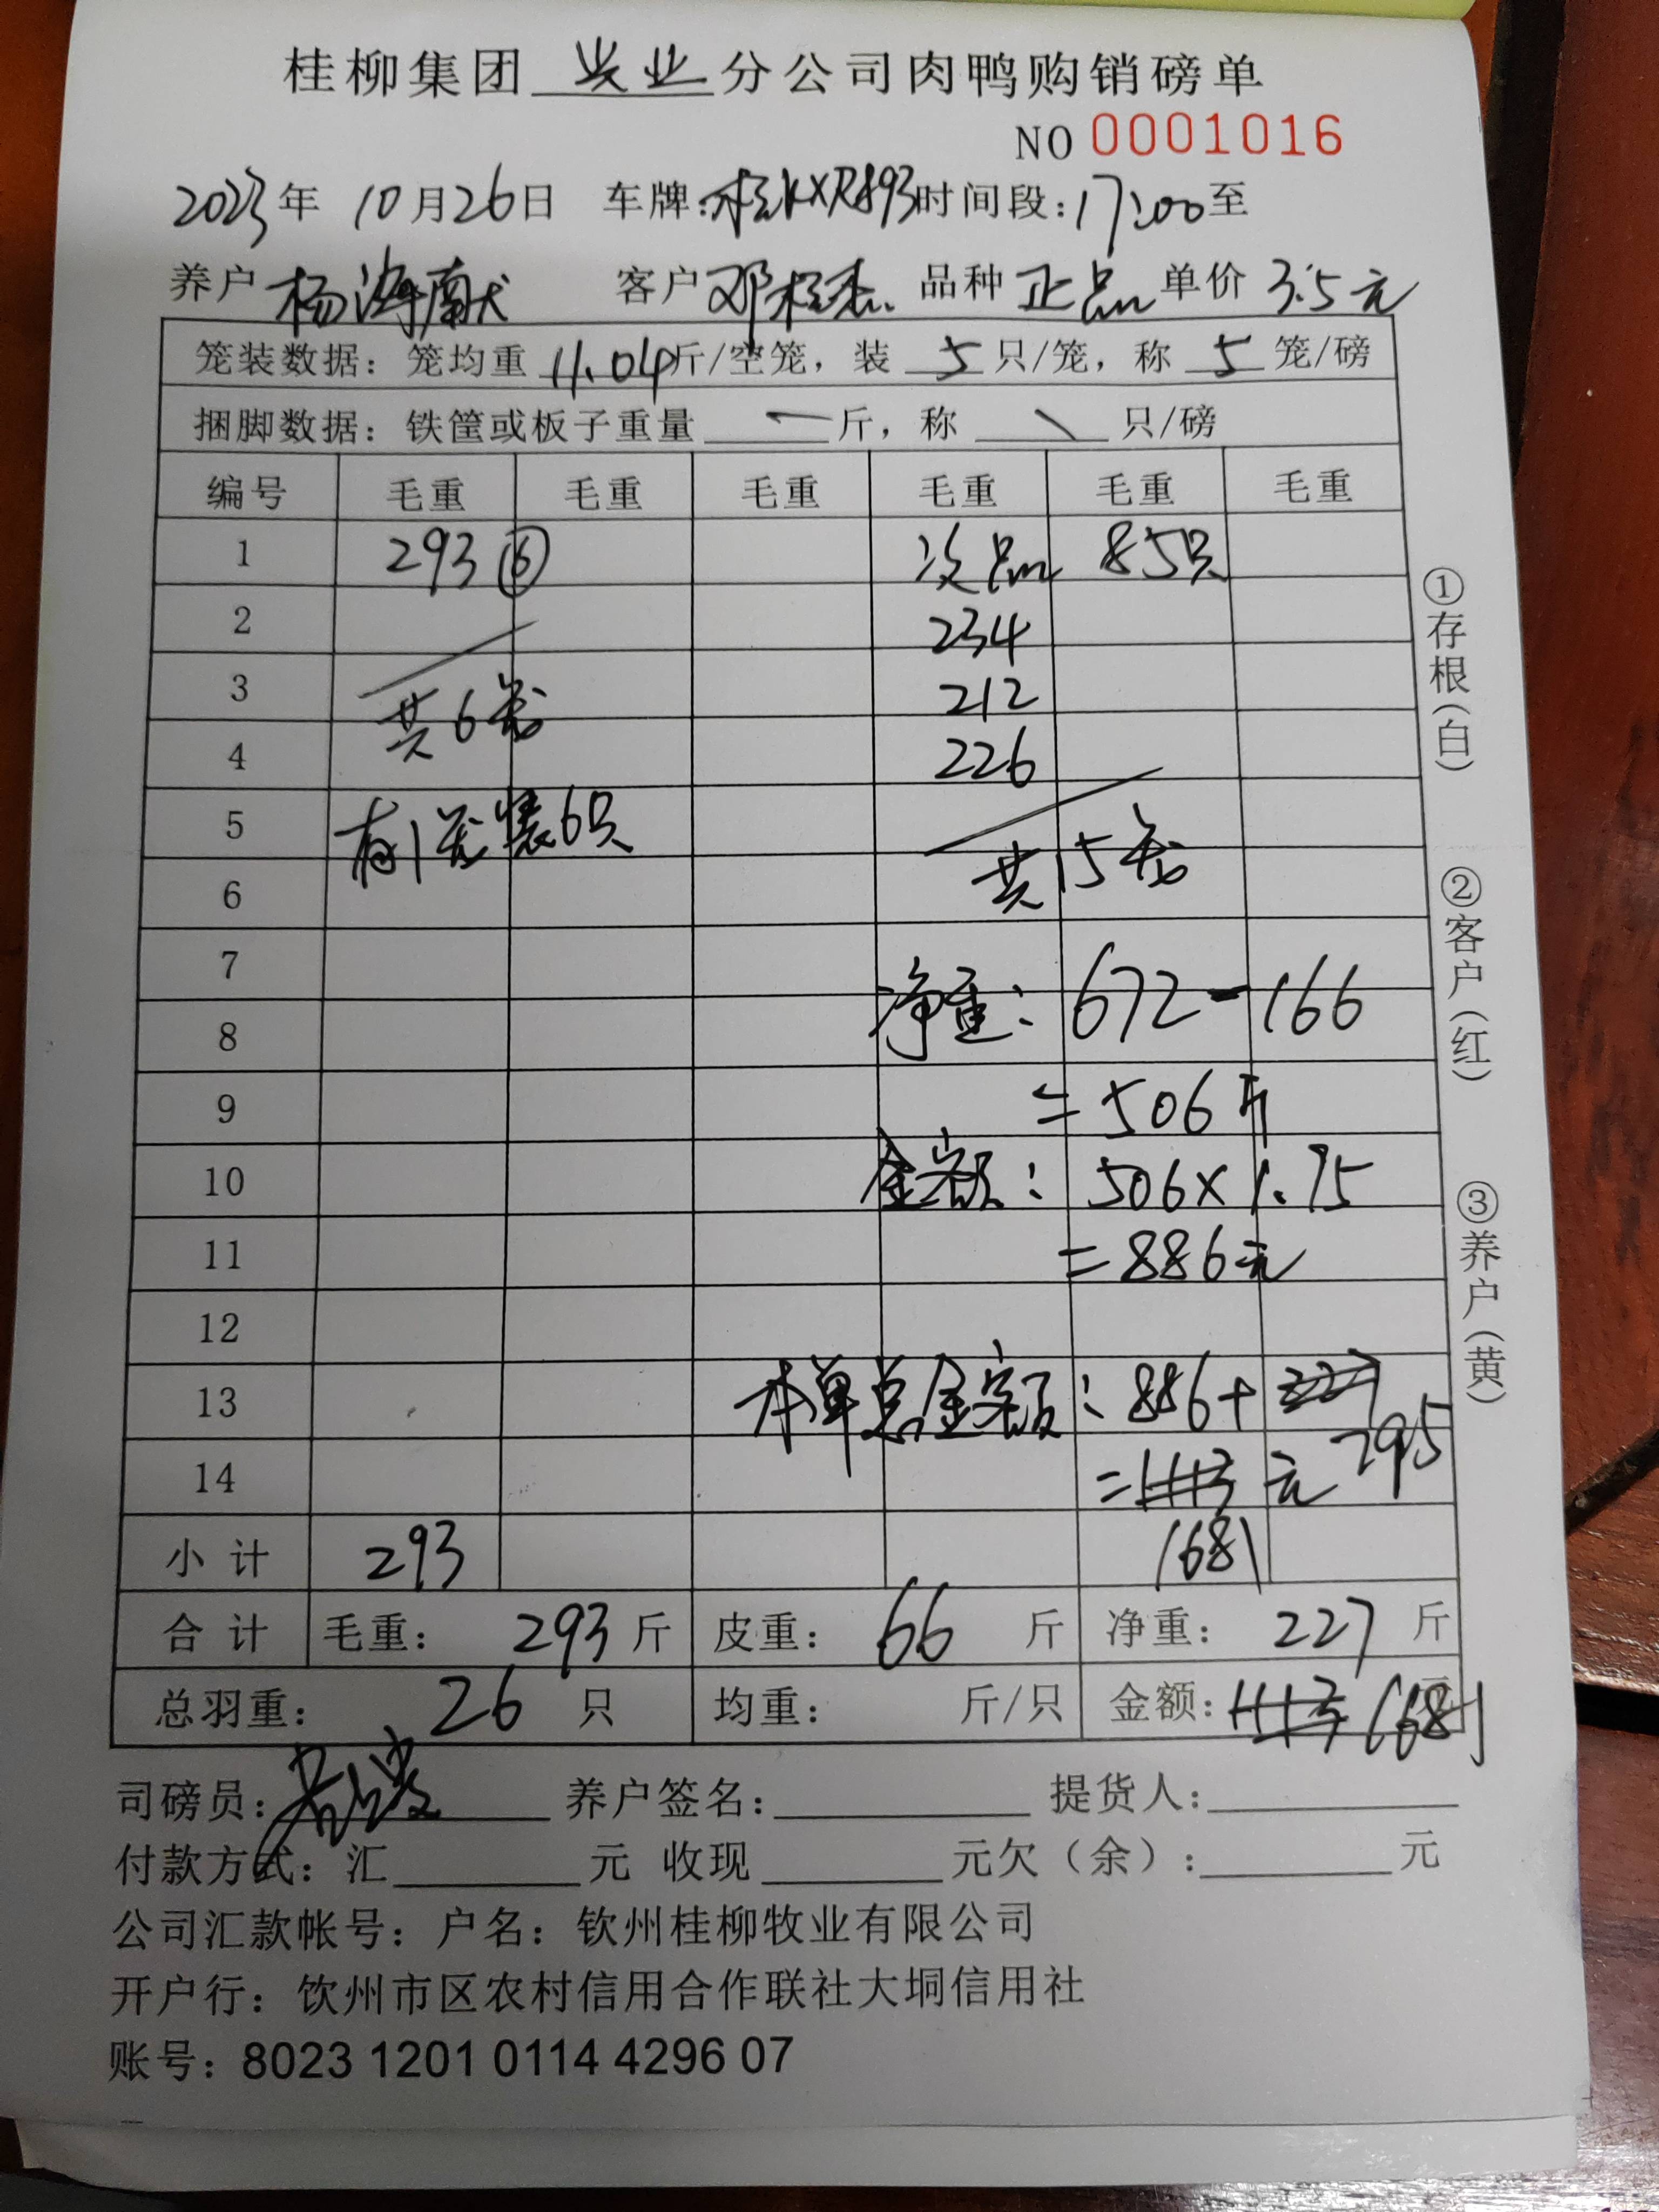 桂柳集团 兴业 分公司肉鸭购销磅单
NO 0001016
2023年 10月26日 车牌:桂KXR893时间段:17:00至
养户 杨海献 客户 邓桂杰 品种 正品 单价 3.5元
笼装数据: 笼均重 11.04斤/空笼, 装 5 只/笼, 称 5 笼/磅
捆脚数据: 铁筐或板子重量 斤, 称 只/磅
编号 毛重 毛重 毛重 毛重 毛重 毛重
1 293 ⑥ 次品 85只
2 234
3 共6笼 212
4 226
5 有1笼装6只
6 共15笼
7
8 净重: 672-166
9 =506斤
10 金额: 506×1.75
11 =886元
12
13 本单总金额: 886+227 795
14 =1113元
小计 293 1681
合计 毛重: 293斤 皮重: 66 斤 净重: 227 斤
总羽重: 26 只 均重: 斤/只 金额: 1113 1681
司磅员: 养户签名: 提货人:
付款方式: 汇 元 收现 元欠(余): 元
公司汇款帐号: 户名: 钦州桂柳牧业有限公司
开户行: 饮州市区农村信用合作联社大垌信用社
账号: 8023 1201 0114 4296 07
①存根(白)
②客户(红)
③养户(黄)